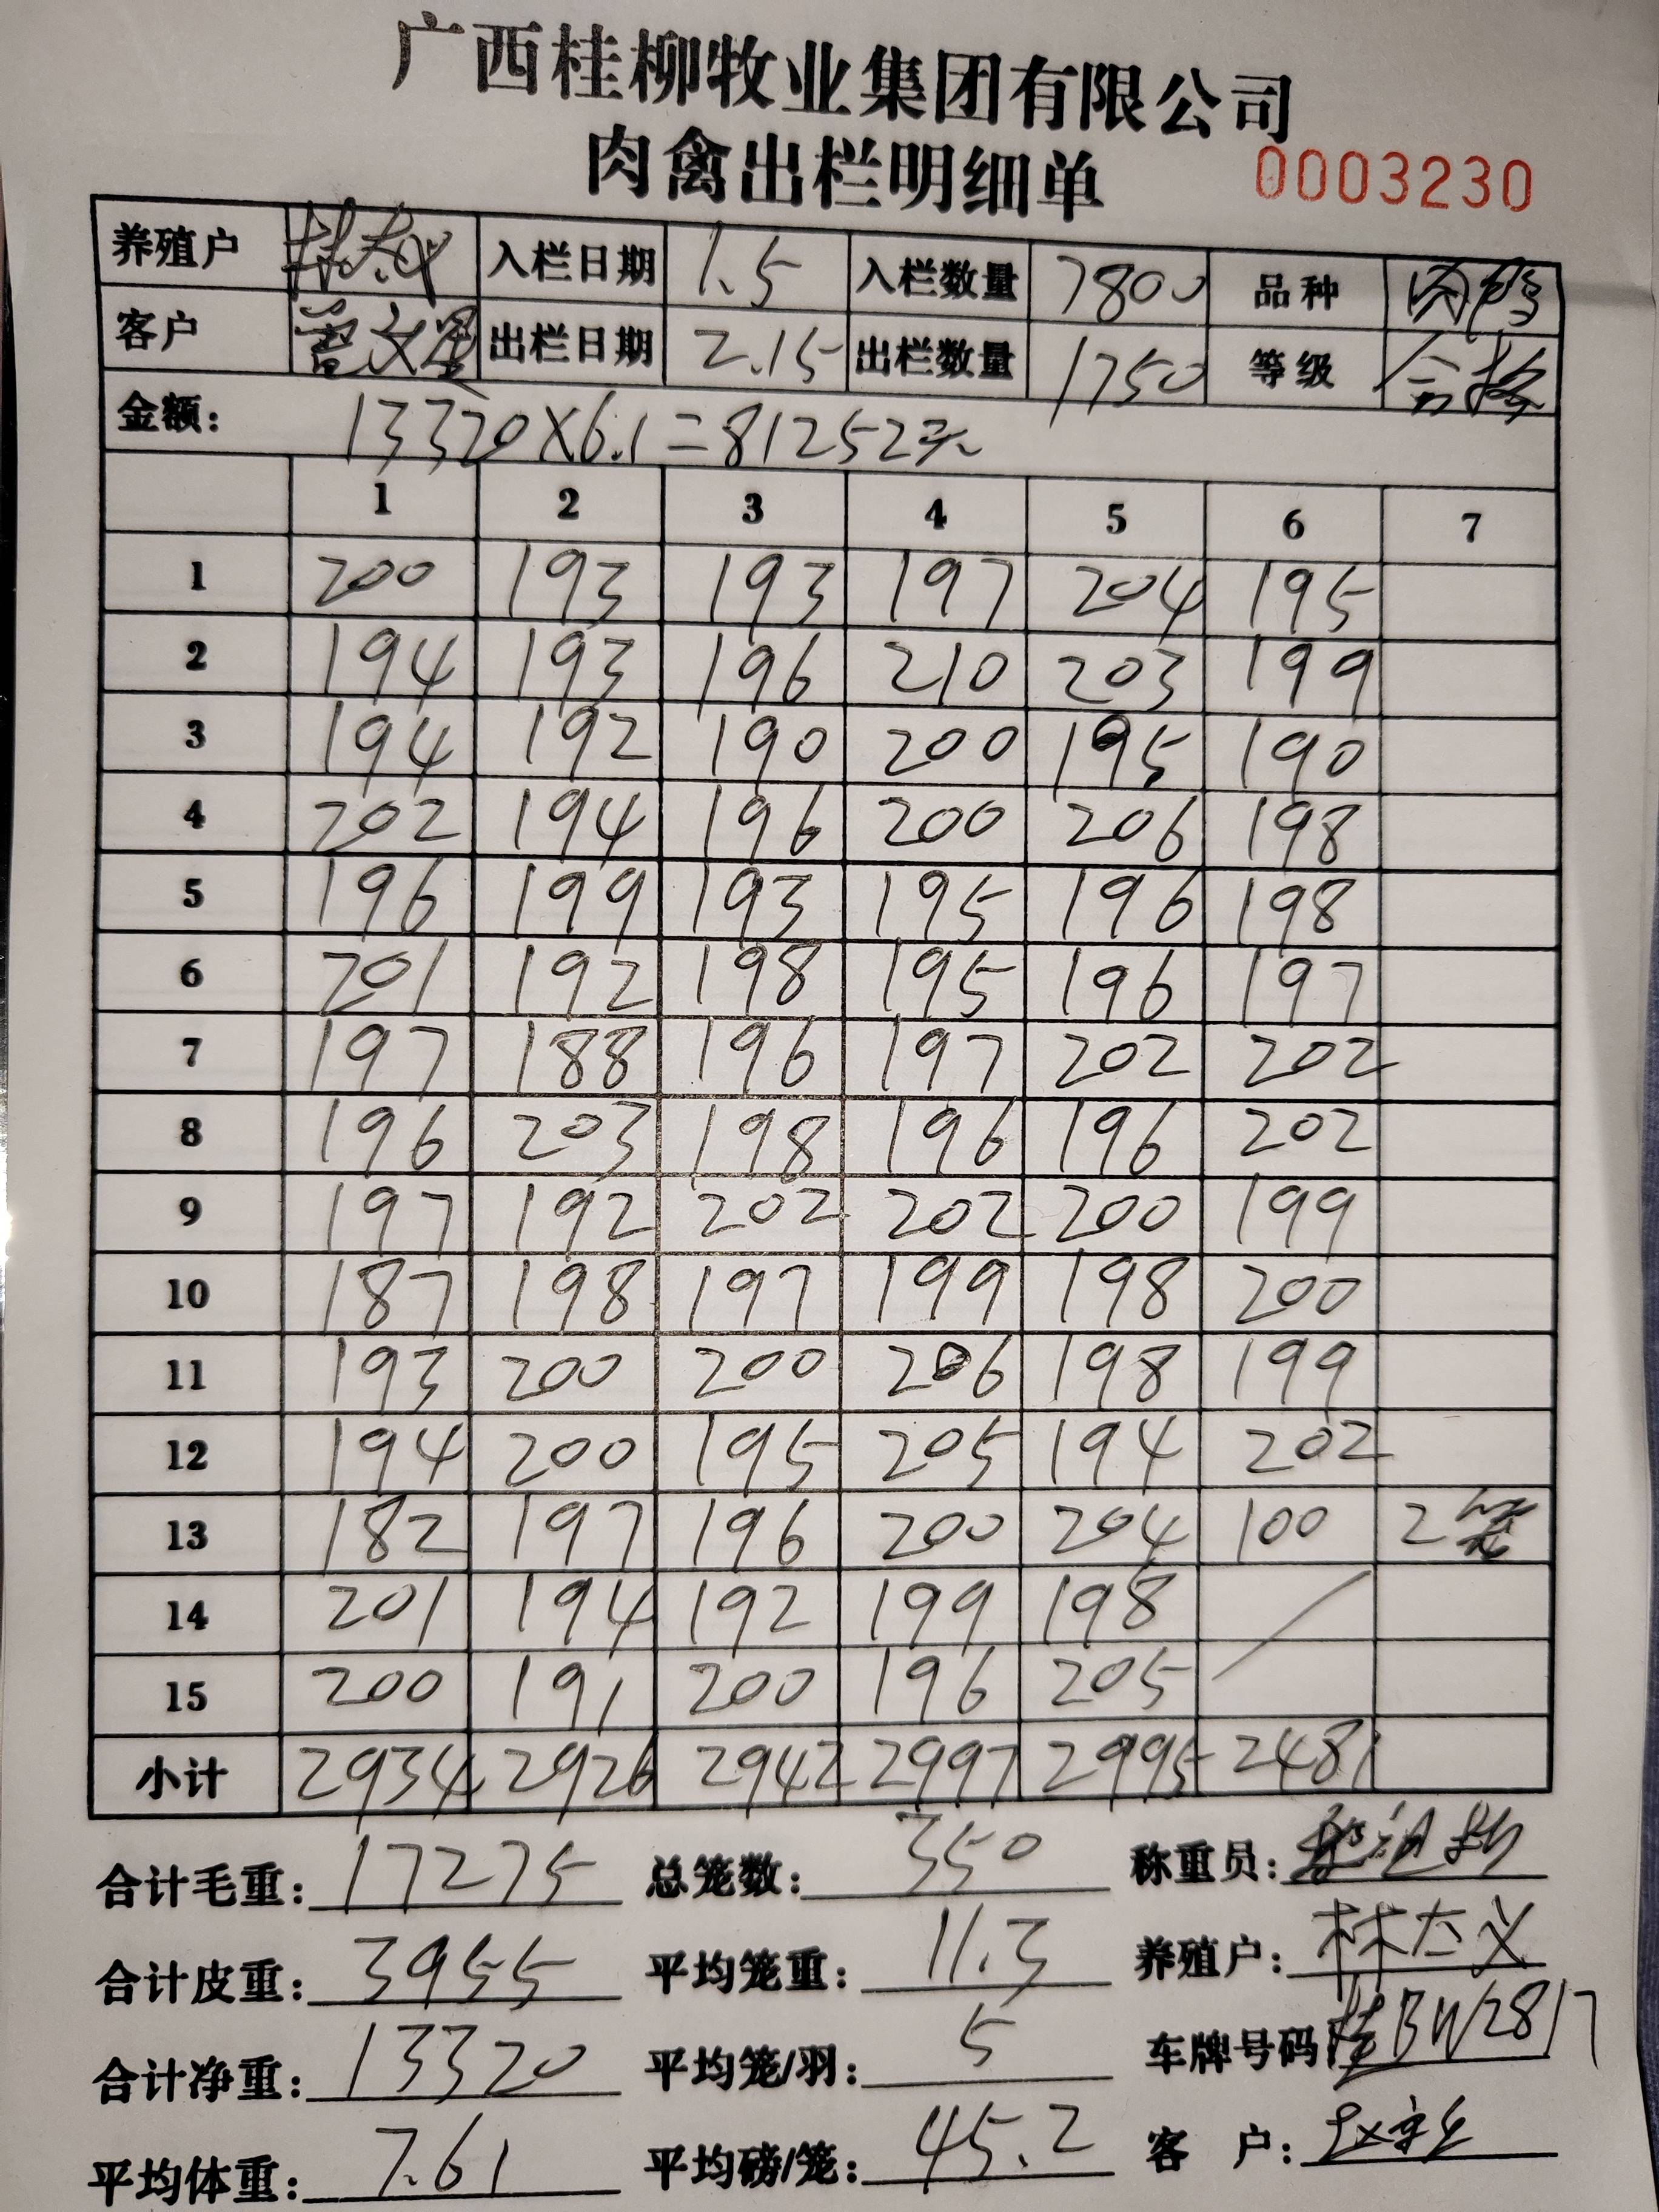 广西桂柳牧业集团有限公司
肉禽出栏明细单 0003230
养殖户 林太义 入栏日期 1.5 入栏数量 7800 品种 肉鸭
客户 曾文星 出栏日期 2.15 出栏数量 1750 等级 合格
金额: 13320×6.1=81252元
1 2 3 4 5 6 7
1 200 193 193 197 204 195
2 194 193 196 210 203 199
3 194 192 190 200 195 190
4 202 194 196 200 206 198
5 196 199 193 195 196 198
6 201 192 198 195 196 197
7 197 188 196 197 202 202
8 196 203 198 196 196 202
9 197 192 202 202 200 199
10 187 198 197 199 198 200
11 193 200 200 206 198 199
12 194 200 195 205 194 202
13 182 197 196 200 204 100 2笼
14 201 194 192 199 198
15 200 191 200 196 205
小计 2934 2926 2942 2997 2995 2481
合计毛重: 17275 总笼数: 350 称重员:
合计皮重: 3955 平均笼重: 11.3 养殖户: 林太义
合计净重: 13320 平均笼/羽: 5 车牌号码 桂BW2817
平均体重: 7.61 平均磅/笼: 45.2 客 户: